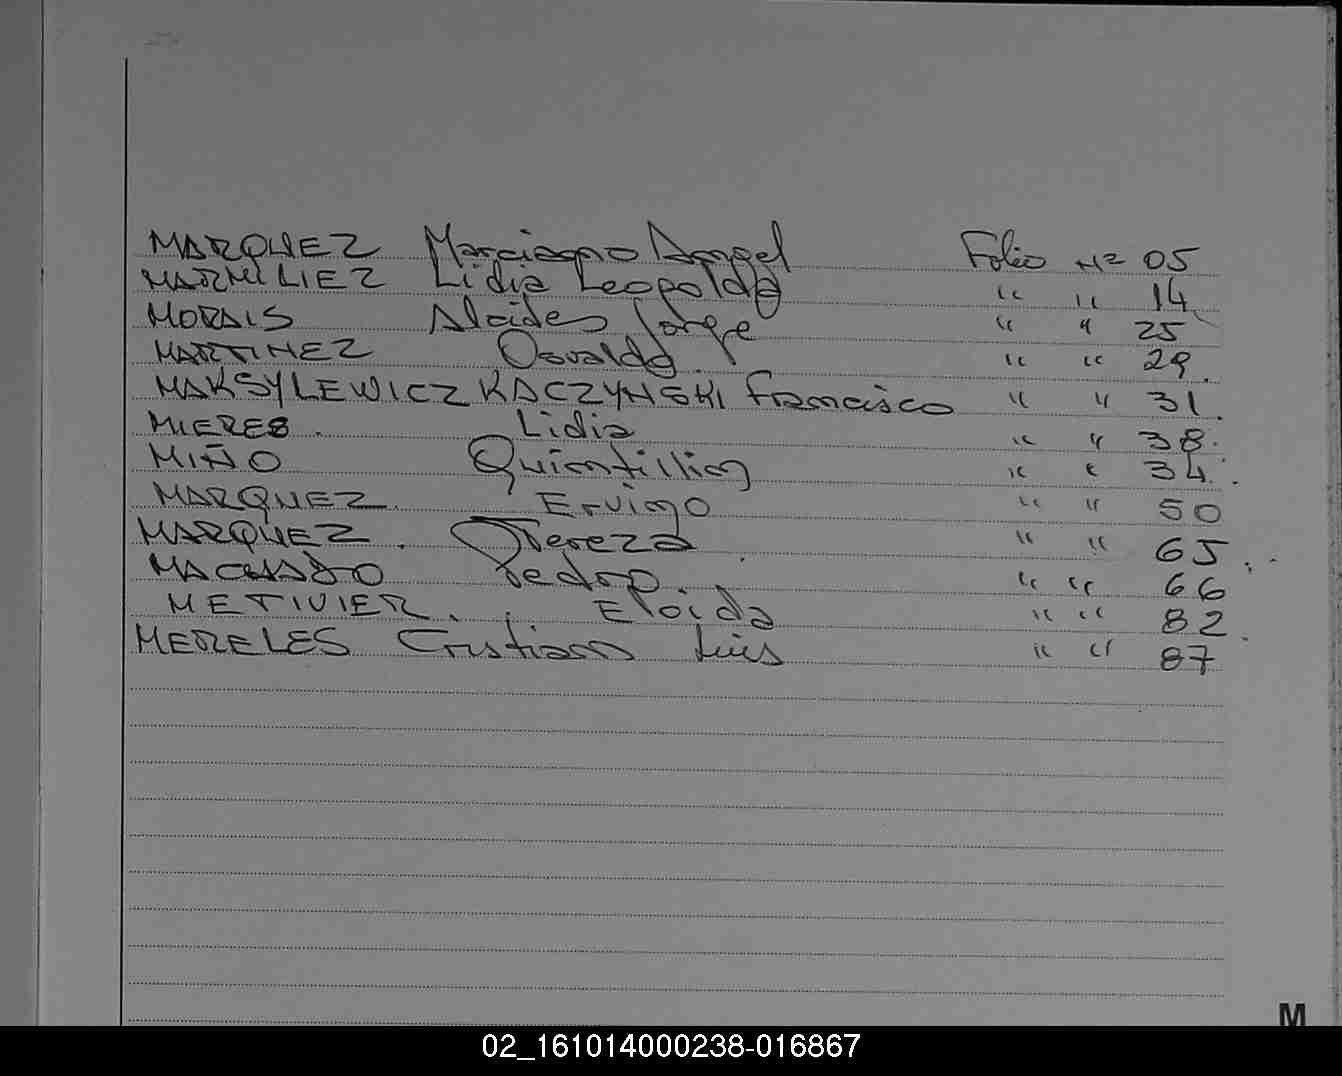 MARQUEZ Marciano Angel Folio Nº 05
MARMILIEZ Lidia Leopolda " " 14
MORAIS Alcides Jorge " " 25
MARTINEZ Osvaldo " " 29.
MAKSYLEWICZ KACZYNSKI Francisco " " 31.
MIERES. Lidia " " 38.
MIÑO Quintillian " " 34.
MARQUEZ. Ervino " " 50
MARQUEZ. Tereza " " 65.
MACHADO Pedro. " " 66
METIVIER. Eloida " " 82.
MERELES Cristiano Luis " " 87
M
02_161014000238-016867